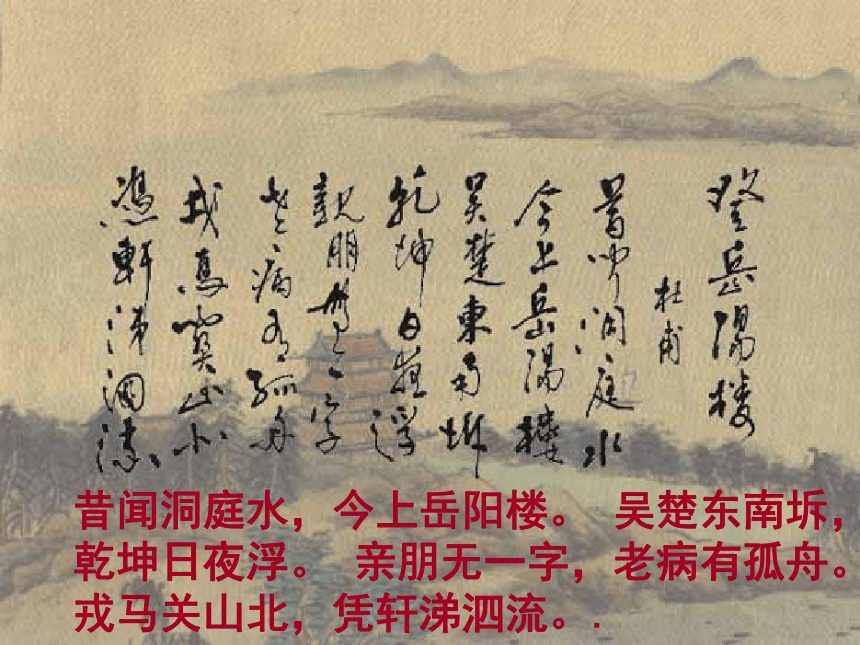 登岳陽楼
杜甫
昔闻洞庭水
今上岳陽楼
吴楚東南坼
乾坤日夜浮
親朋無一字
老病有孤舟
戎馬関山北
憑軒涕泗流
昔闻洞庭水，今上岳阳楼。 吴楚东南坼，
乾坤日夜浮。 亲朋无一字，老病有孤舟。
戎马关山北，凭轩涕泗流。.